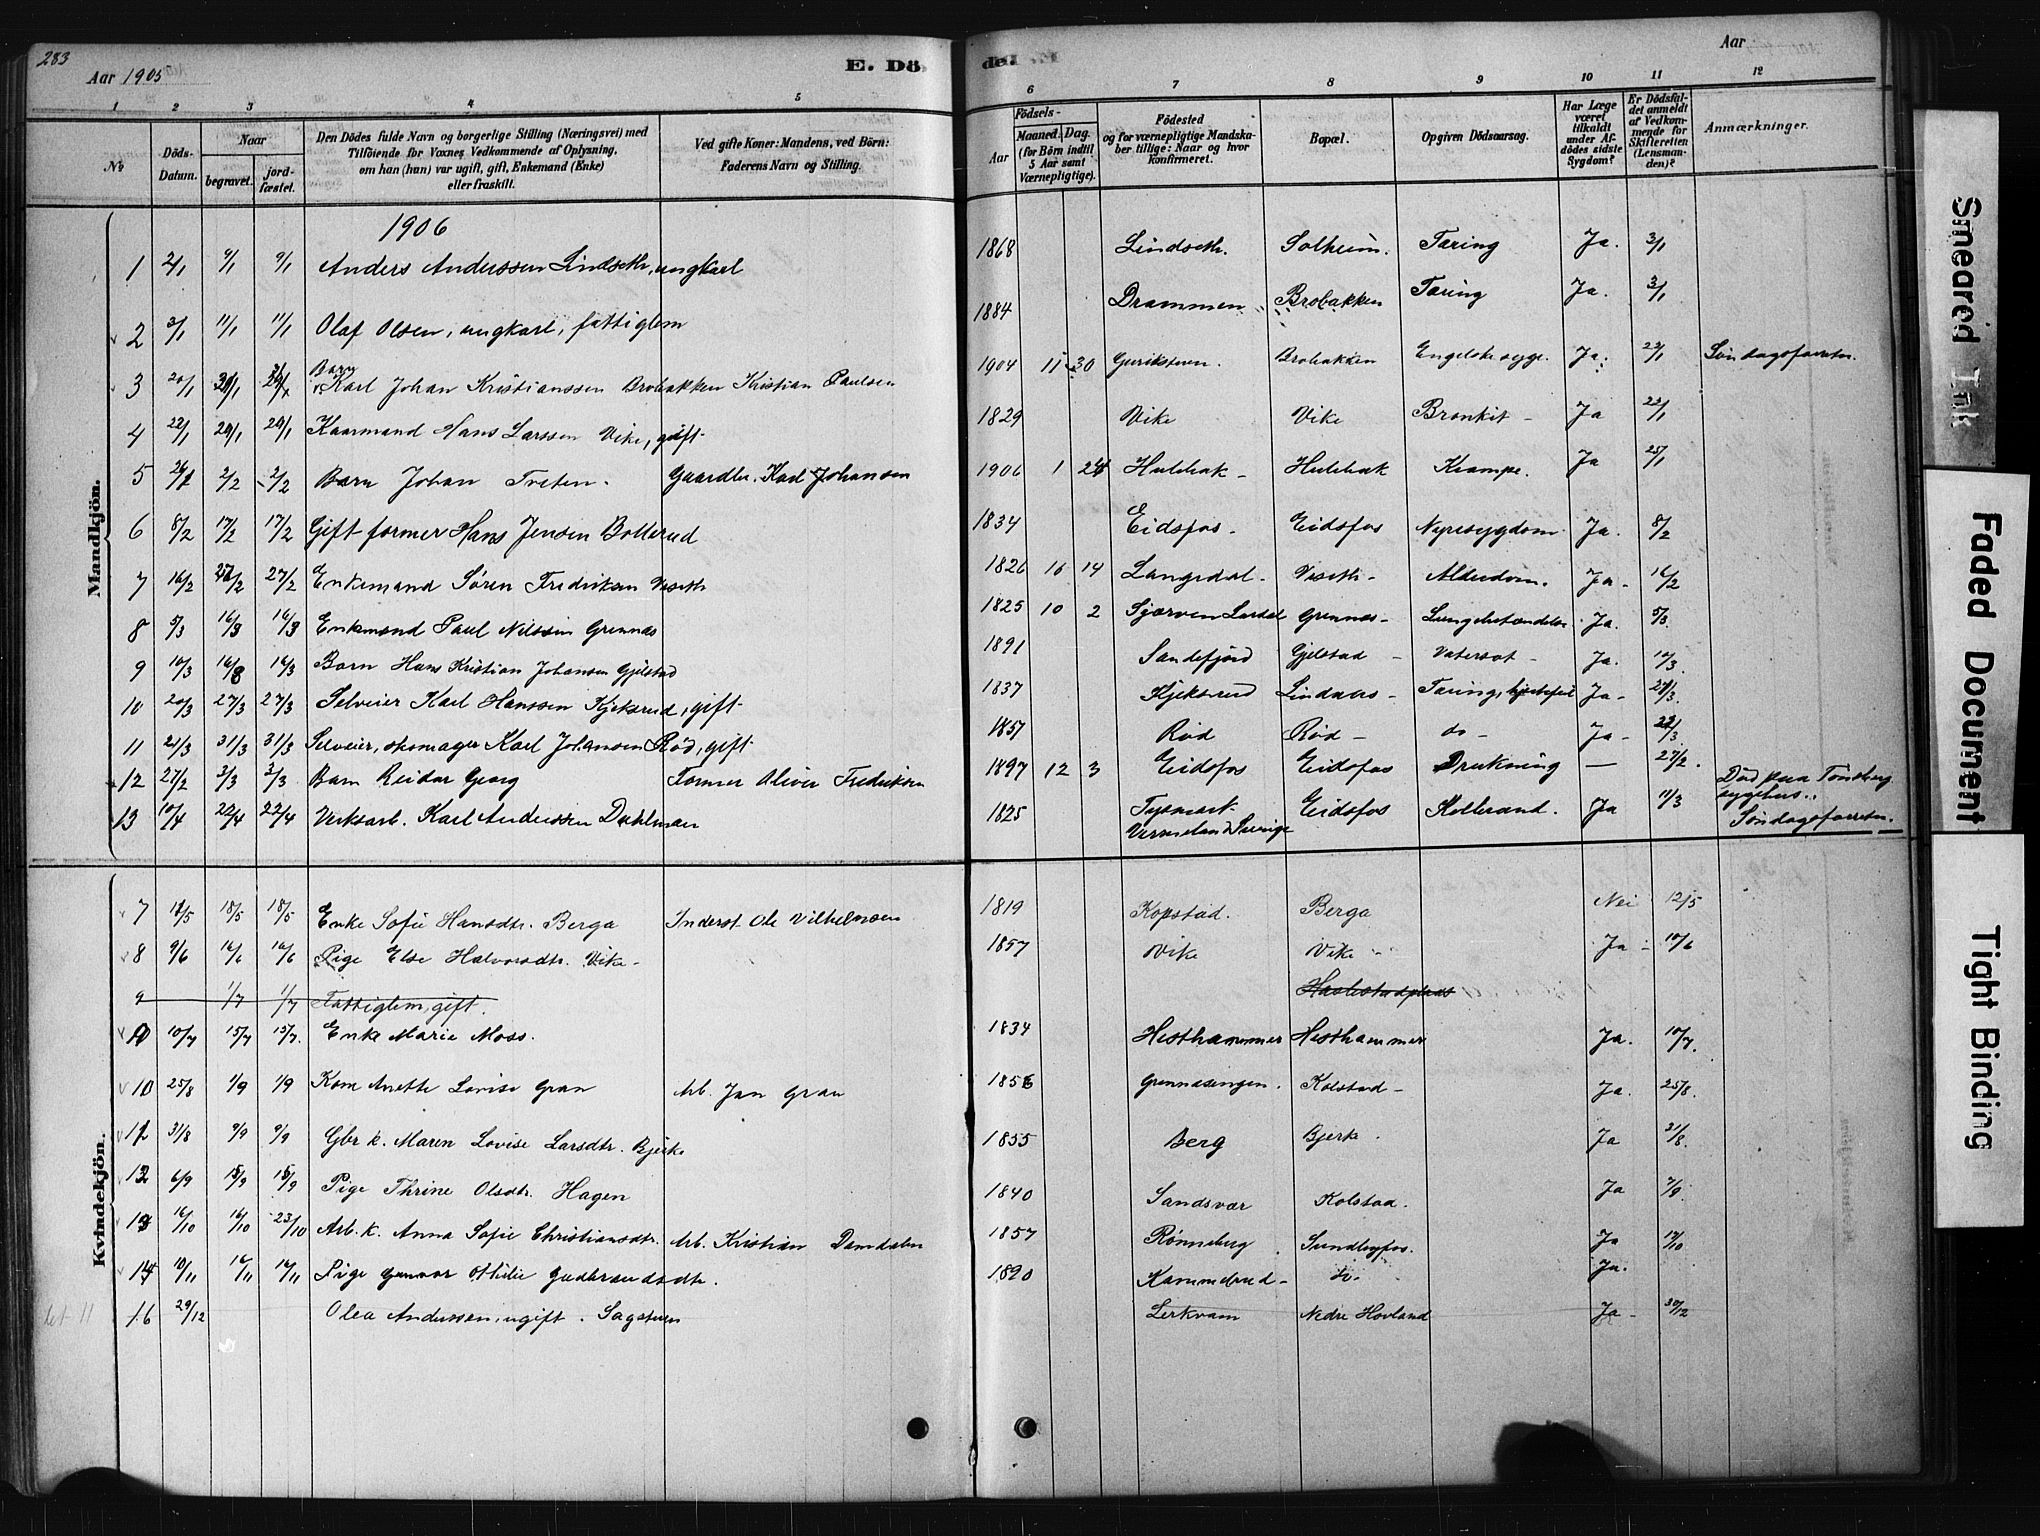 283
Aar 1905
E. Dö
de.
Aar
1 2 3 4 5 6 7 8 9 10 11 12
No
Döds-Datum.
Naar
begravet.
jordfæstet.
Den Dödes fulde Navn og borgerlige Stilling (Næringsvei) med
Tilföiende for Voxnes Vedkommende af Oplysning,
om han (hun) var ugift, gift, Enkemand (Enke)
eller fraskilt.
Ved gifte Koner: Mandens, ved Börn:
Faderens Navn og Stilling.
Födsels-
Aar
Maaned. Dag.
(for Börn indtil
5 Aar samt
Værnepligtige).
Födested
og for værnepligtige Mandskaber tillige: Naar og hvor
konfirmeret.
Bopæl.
Opgiven Dödsaarsag.
Har Læge
været
tilkaldt
under Afdödes sidste
Sygdom?
Er Dödsfaldet anmeldt
af Vedkommende for
Skifteretten
(Lensmanden)?
Anmærkninger.
Mandkjön.
1906
1 2/1 9/1 9/1 Anders Anderssen Lindseth, ungkarl 1868 Lindseth. Solheim. Tæring Ja. 3/1
2 3/1 11/1 11/1 Olaf Olsen, ungkarl, fattiglem 1884 Drammen Brobakken Tæring Ja. 3/1
3 20/1 Barn Karl Johan Kristianssen Brobakken Kristian Paulsen 1904 11 30 Brobakken Engelske syge. Ja. 22/1 Söndagsforretn.
4 22/1 29/1 29/1 Kaarmand Hans Larssen Vike, gift 1829 Vike Vike Bronkit Ja 22/1
5 2/2 2/2 Barn Johan Treten. Gaardbr. Karl Johansen 1906 1 24 Hulebak Hulebak Krampe. Ja 25/1
6 8/2 17/2 17/2 Gift former Hans Jensen Bollerud 1834 Eidsfos Eidsfos Nyresygdom Ja. 8/2
7 16/2 27/2 27/2 Enkemand Sören Fredriksen Viseth 1826 14 Langedal Viseth Alderdom. Ja 16/2
8 5/3 16/3 16/3 Enkemand Paul Nilssen Grennes 1825 10 2 Sjærven Lardal Grennes Lungebetændelse Ja. 5/3.
9 10/3 16/3 16/3 Barn Hans Kristian Johansen Gjelstad 1891 Sandefjord Gjelstad Vatersot Ja. 12/3.
10 20/3 27/3 27/3 Selveier Karl Hanssen Kjeksrud, gift 1837 Kjeksrud Lindaas Tæring, hjertefeil Ja 21/3.
11 21/3 31/3 31/3 Selveier, skomager Karl Johansen Röd, gift 1857 Röd Röd do Ja 22/3
12 27/2 3/3 3/3 Barn Reidar Georg Former Oliver Fredriksen 1897 12 3 Eidsfos Eidsfos Drukning — 27/2. Död paa Tönsberg sygehus.
13 10/4 22/4 22/4 Verksarb. Karl Anderssen Dahlman 1825 Vermeland Sverige Eidsfos Kolbrand. Ja 11/3 Söndagsforretn.
Kvindekjön.
7 18/5 18/5 Enke Sofie Hansdtr. Berga Inderst Ole Vilhelmsen 1819 Kopstad. Berga Nei 12/5
8 9/6 16/6 16/6 Pige Else Halvorsdtr. Vike 1857 Vike Vike Ja 10/6
9 1/7 1/7 Fattiglem, gift. Haslestadplads
10/7 15/7 15/7. Enke Marie Moss. 1834 Hesthammer Hesthammer Ja. 10/7.
10 25/8 1/9 1/9 Kone Anette Lovise Gran Arb. Jan Gran 1856 Grennesengen. Kolstad Ja. 25/8.
12 31/8 9/9 9/9 Gbr k. Maren Lovise Larsdtr. Bjerke 1855 Berg Bjerk. Ja 31/8.
13 6/9 15/9 15/9 Pige Thrine Olsdtr. Hagen 1840 Sandsvær Kolstad. Ja 7/9.
16/10 16/10 23/10 Arb. k. Anna Sofie Christiansdtr. Arb. Kristian Damdalen 1857 Rønneberg Sundbyfos. Ja 17/10
14 10/11 16/11 16/11 Pige Gunvor Othilie Gudbrandsdtr. 1890 Kammebrud do. Ja.
let 11
16 29/12 Olea Anderssen, ugift. Sagstuen Lerkvam Nedre Hovland Ja 30/12
Smeared Ink
Faded Document
Tight Binding